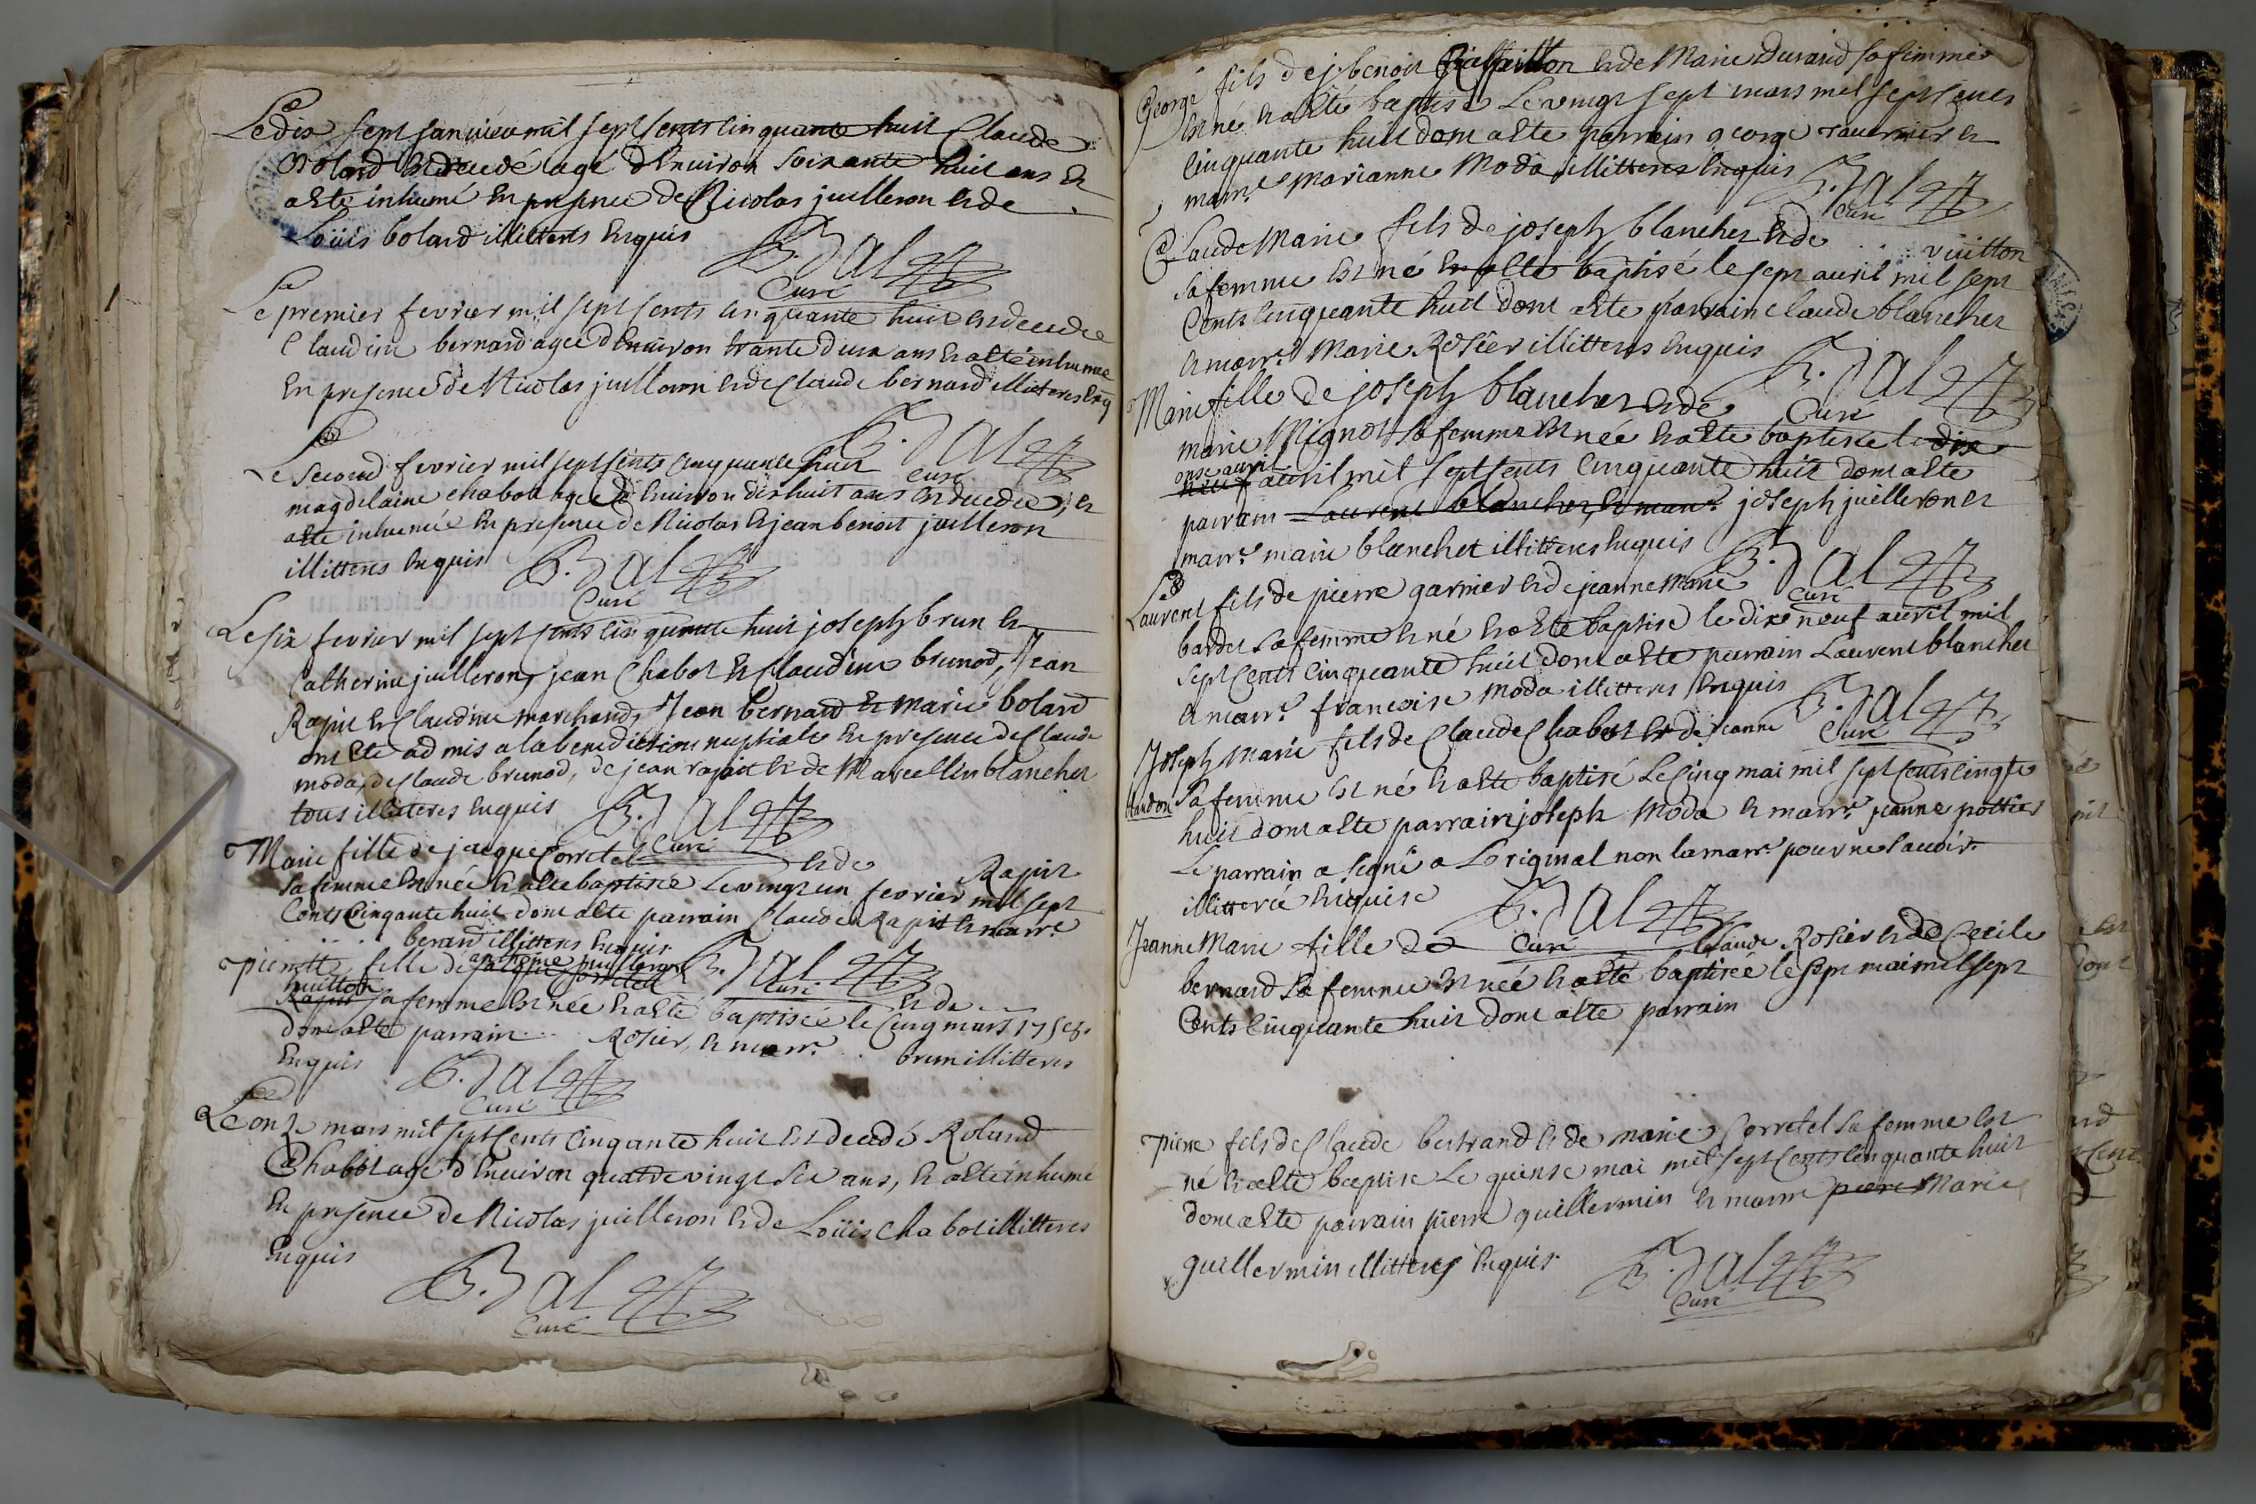 Le dix sept janvier mil sept cents cinquante huit Claude
Bolard est decedé agé d'environ soixante huit ans et
a esté inhumé en presence de Nicolas juilleron et de
Loüis bolard illitterés enquis
B. Dal
Curé
Le premier fevrier mil sept cents cinquante huit est decedée
Claudine bernard agée d'environ trante deux ans et a esté inhumée
en presence de Nicolas juilleron et de Claude bernard illitterés enq
B. Dal
Curé
Le second fevrier mil sept cents cinquante huit
magdelaine chabot agée d'environ dix huit ans est decedée, et
a esté inhumée en presence de Nicolas et jean benoit juilleron
illitterés enquis
B. Dal
Curé
Le six fevrier mil sept cents cinquante huit joseph brun et
Catherine juilleron, jean Chabot et Claudine brunod, Jean
Rapin et Claudine marchand, Jean bernard et Marie bolard
ont esté admis a la benediction nuptiale en presence de Claude
moda, de Claude brunod, de jean et de Marcellin blanchet
tous illitterés enquis
B. Dal
Curé
Marie fille de jacque Corretel et de Rapit
sa femme est née et a esté baptisée le vingt un fevrier mil sept
Cents Cinqante huit dont a esté parrain Claude Rapit et marre
berard illitterés enquis
B. Dal
Curé
pierrette fille de anthoine juilleron jacque Corretel et de
vuitton Rapit sa femme est née et a esté baptisée le Cinq mars 1758.
dont a esté parrain .. Rosier, et marr.e .. brun illitterés
enquis
B. Dal
Curé
Le onze mars mil sept cents cinqante huit est decedé Roland
Chabot agé d'environ quatre vingt six ans, et a esté inhumé
en presence de Nicolas juilleron et de Loüis chabot illitterés
enquis
B. Dal
Curé
George fils de j benoit et de Marie Durand sa femme
est né et a esté baptisé le vingt sept mars mil sept cents
cinquante huit dont a esté parrain george tavernier et
marr.e Marianne Moda illitterés enquis
B. Dal
Curé
Claude Marie fils de joseph blanchet et de ... vuitton
sa femme est né et a esté baptisé le sept avril mil sept
Cents Cinquante huit dont a esté parrain Claude blanchet
et marr.e Marie Rosier illitterés enquis
B. Dal
Curé
Marie fille de joseph blanchet et de
marie Mignot sa femme est née et a esté baptisée le dix
onze avril
neuf avril mil sept cents cinquante huit dont a esté
parrain Laurent blanchet, et marr.e joseph juilleron et
marr.e marie blanchet illitterés enquis
B. Dal
Curé
Laurent fils de pierre garnier et de jeanne Marie
bardet sa femme est né et a esté baptisé le dix neuf avril mil
sept Cents Cinquante huit dont a esté parrain Laurent blanchet
et marr.e francoise Moda illitterés enquis
B. Dal
Curé
Joseph Marie fils de Claude Chabot et de jeanne
sa femme est né et a esté baptisé le Cinq mai mil sept cents cinq.te
huit dont a esté parrain joseph Moda et marr.e jeanne pottier
Le parrain a signé a L'original non la marr.e pour ne sçavoir
illitterée enquise
B. Dal
Curé
Jeanne Marie fille de Claude Rosier et de Cecile
bernard sa femme est née et a esté baptisée le sept mai mil sept
Cents Cinquante huit dont a esté parrain
pierre fils de Claude bertrand et de marie Corretel sa femme est
né et a esté baptisé Le quinse mai mil sept Cents Cinquante huit
dont a esté parrain pierre guillermin et marre pierre Marie
guillermin illitterés enquis.
B. Dal
Curé